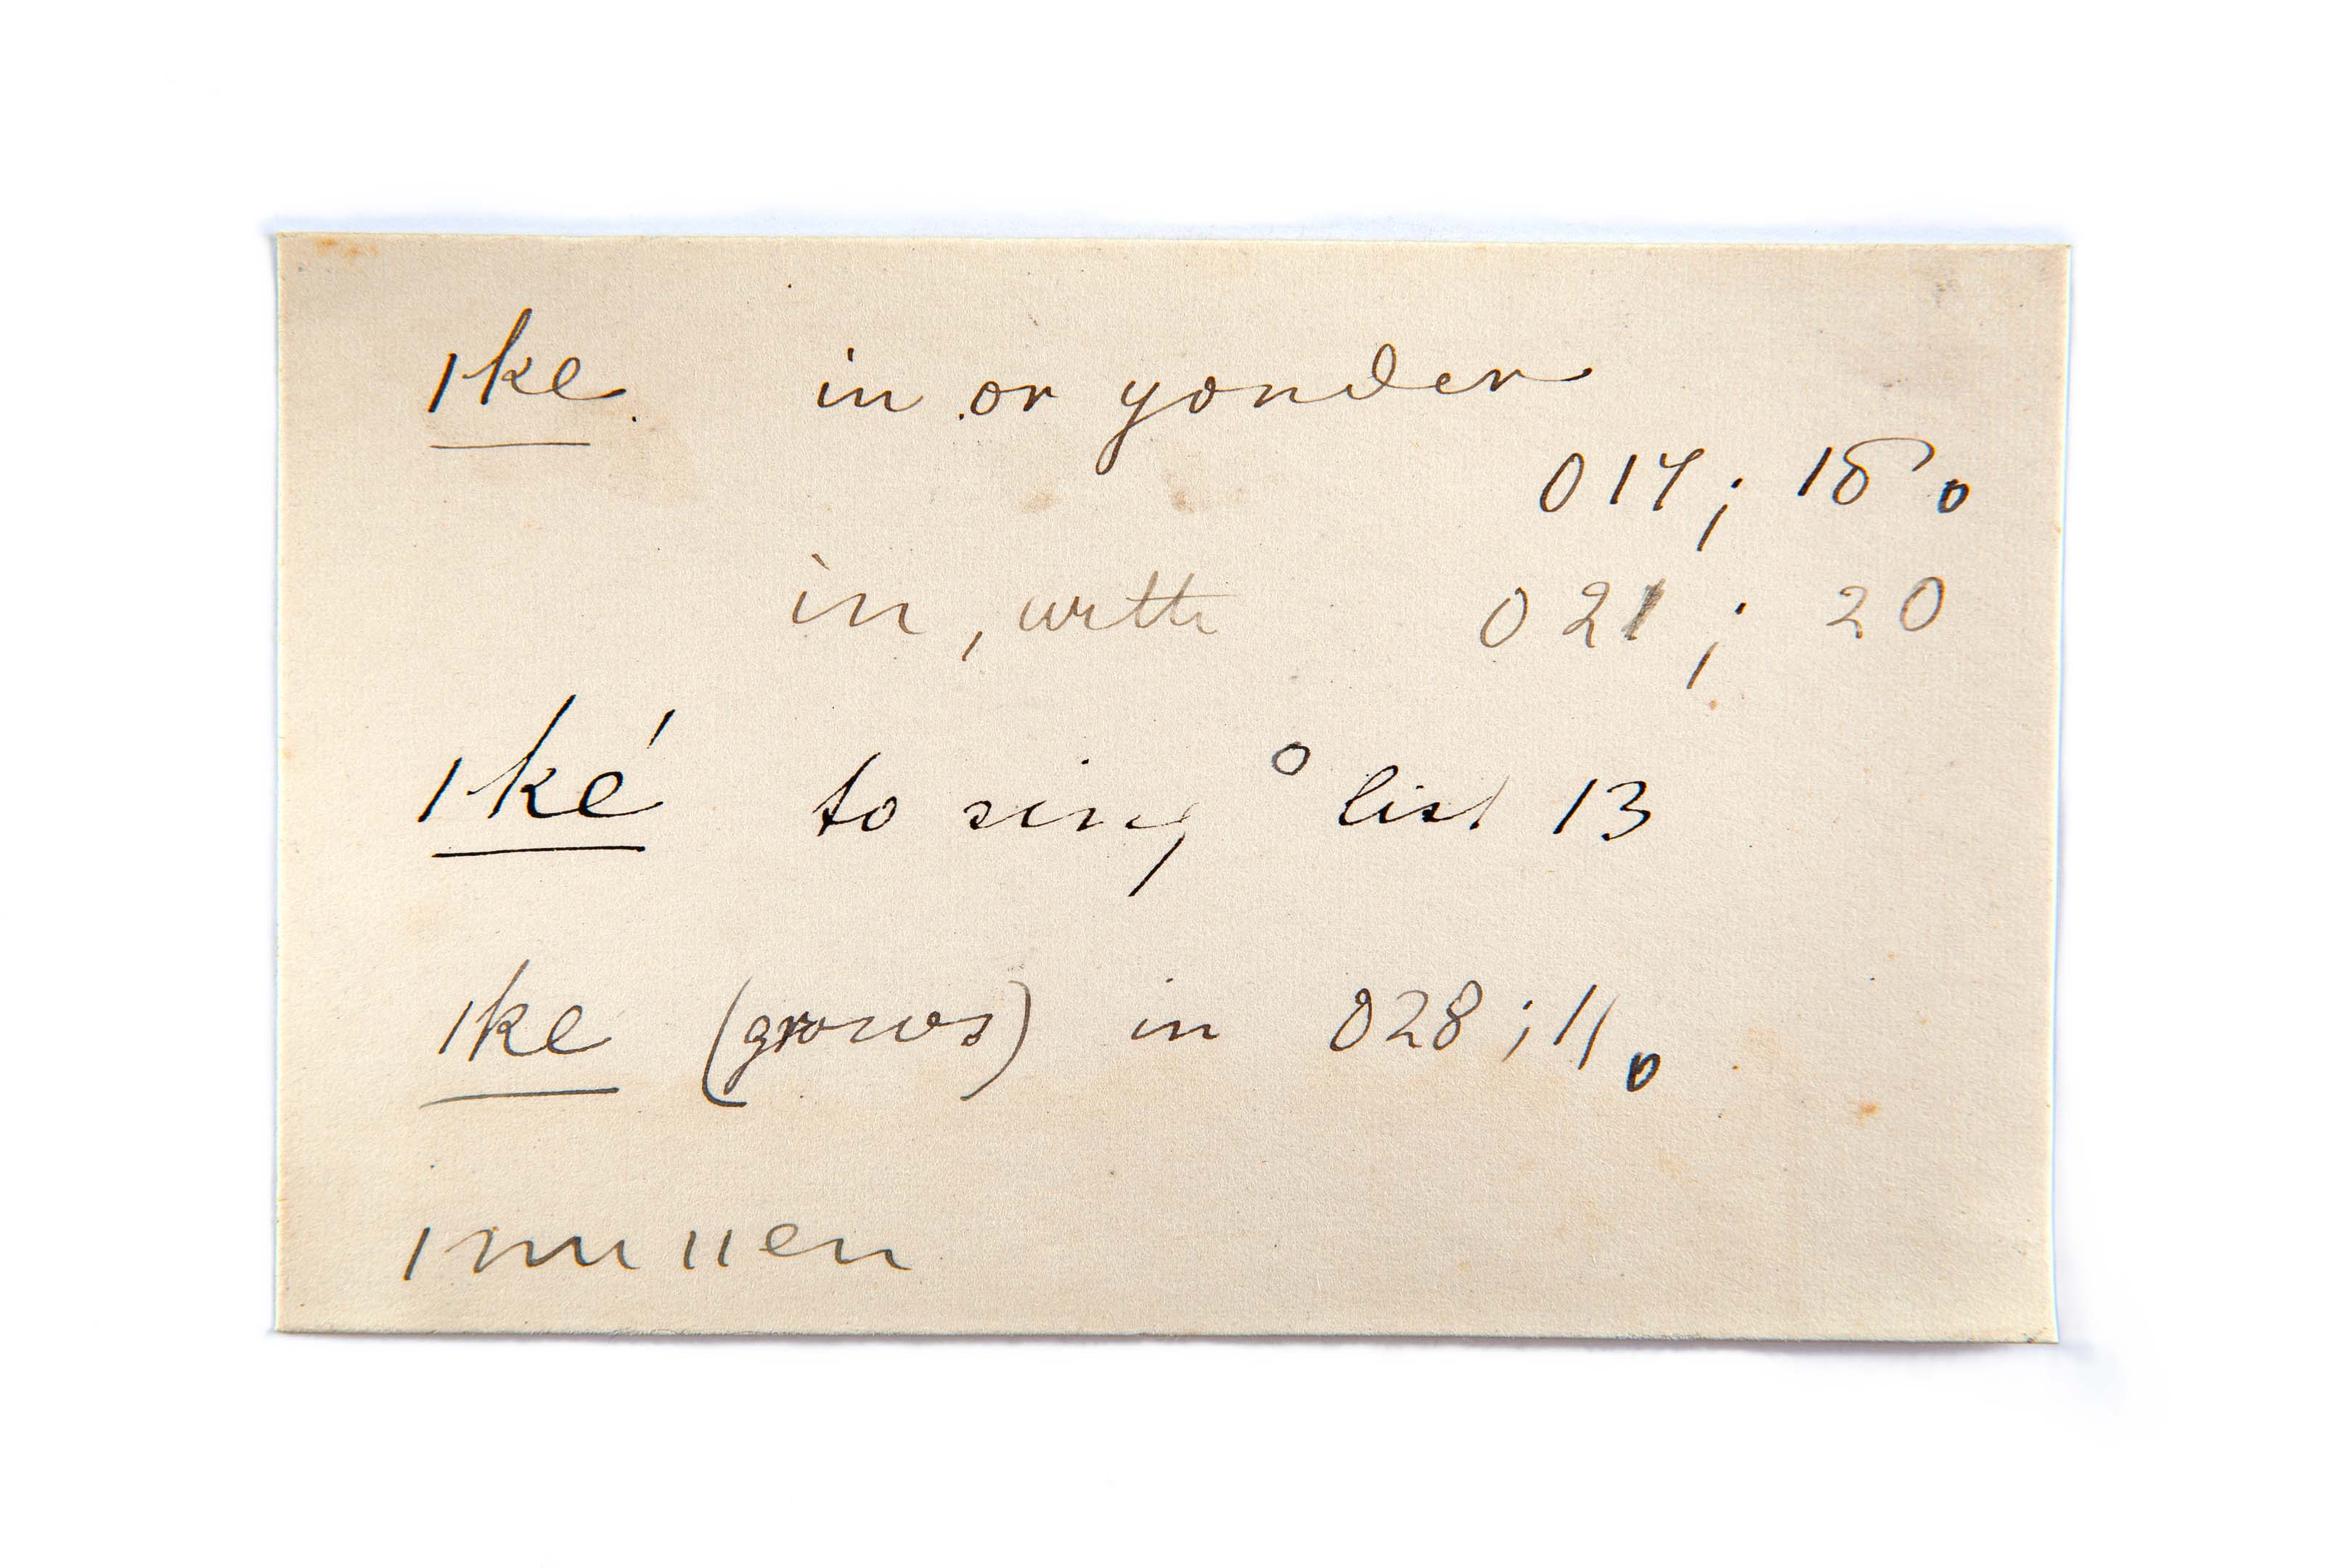 ike. in or yonder
014; 15.
in, with 021; 20
iké to sing ° list 13
ike (grows) in 028; 11.